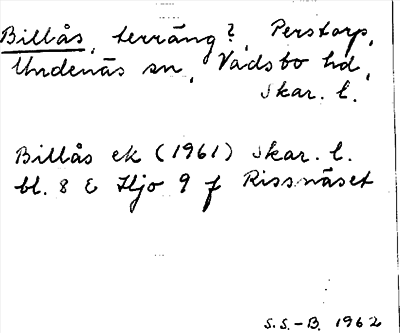 Billås, terräng?, Perstorp,
Undenäs sn, Vadsbo hd,
Skar. l.
Billås ek (1961) Skar. l.
bl. 8 E Hjo 9 f Rissnäset
S.S.-B. 1962